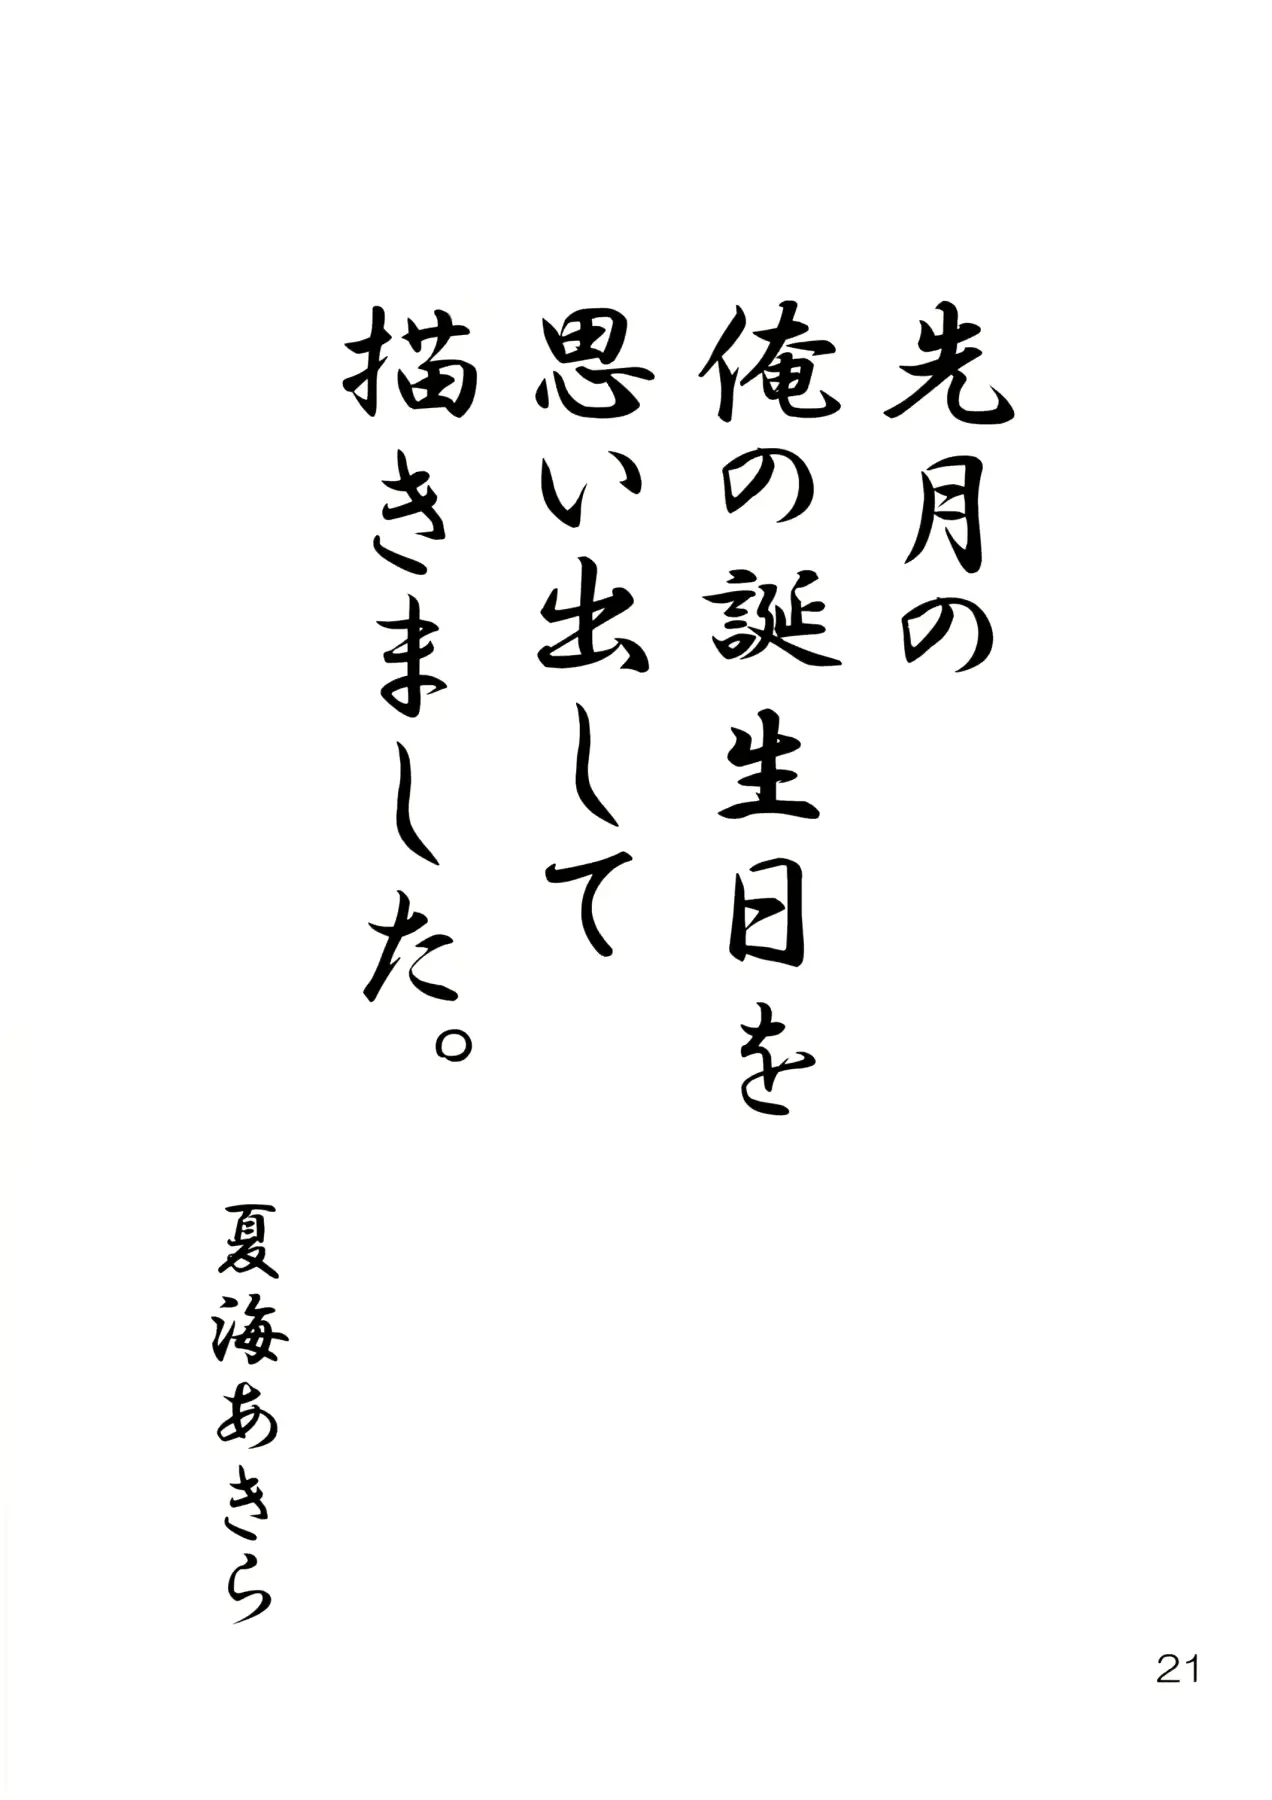 先月の
俺の誕生日を
思い出して
描きました。
夏海あきら
21